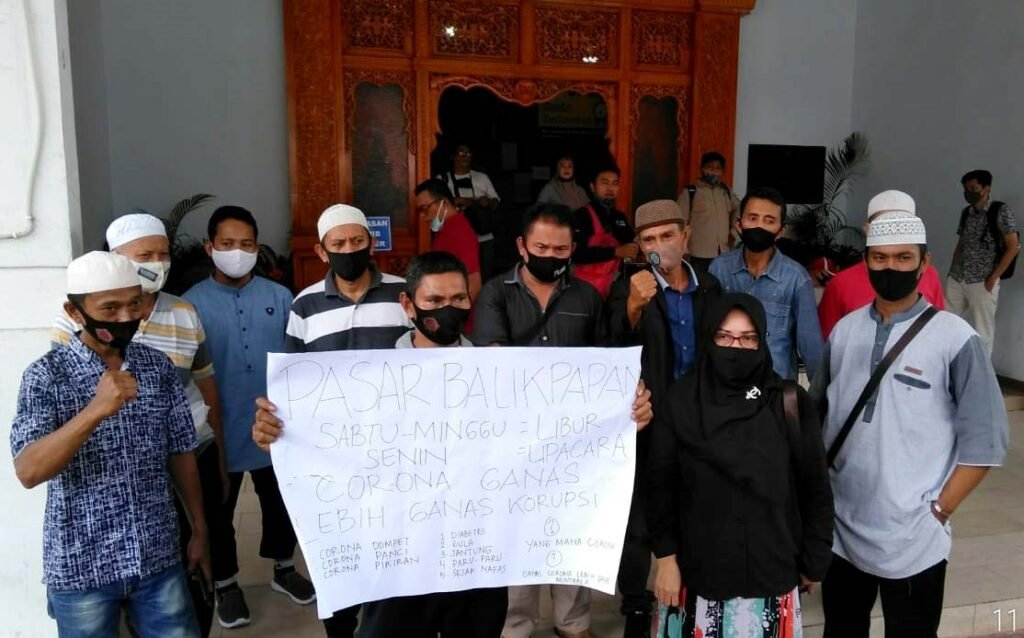 PASAR BALIKPAPAN
SABTU-MINGGU = LIBUR
SENIN = UPACARA
CORONA GANAS
LEBIH GANAS KORUPSI
CORONA DOMPET
CORONA PANCI
CORONA PIKIRAN
1 DIABETES
2. GULA
3. JANTUNG
4 PARU-PARU
5. SESAK NAFAS
①
YANG MANA CORONA
②
GANAS CORONA LEBIH
11